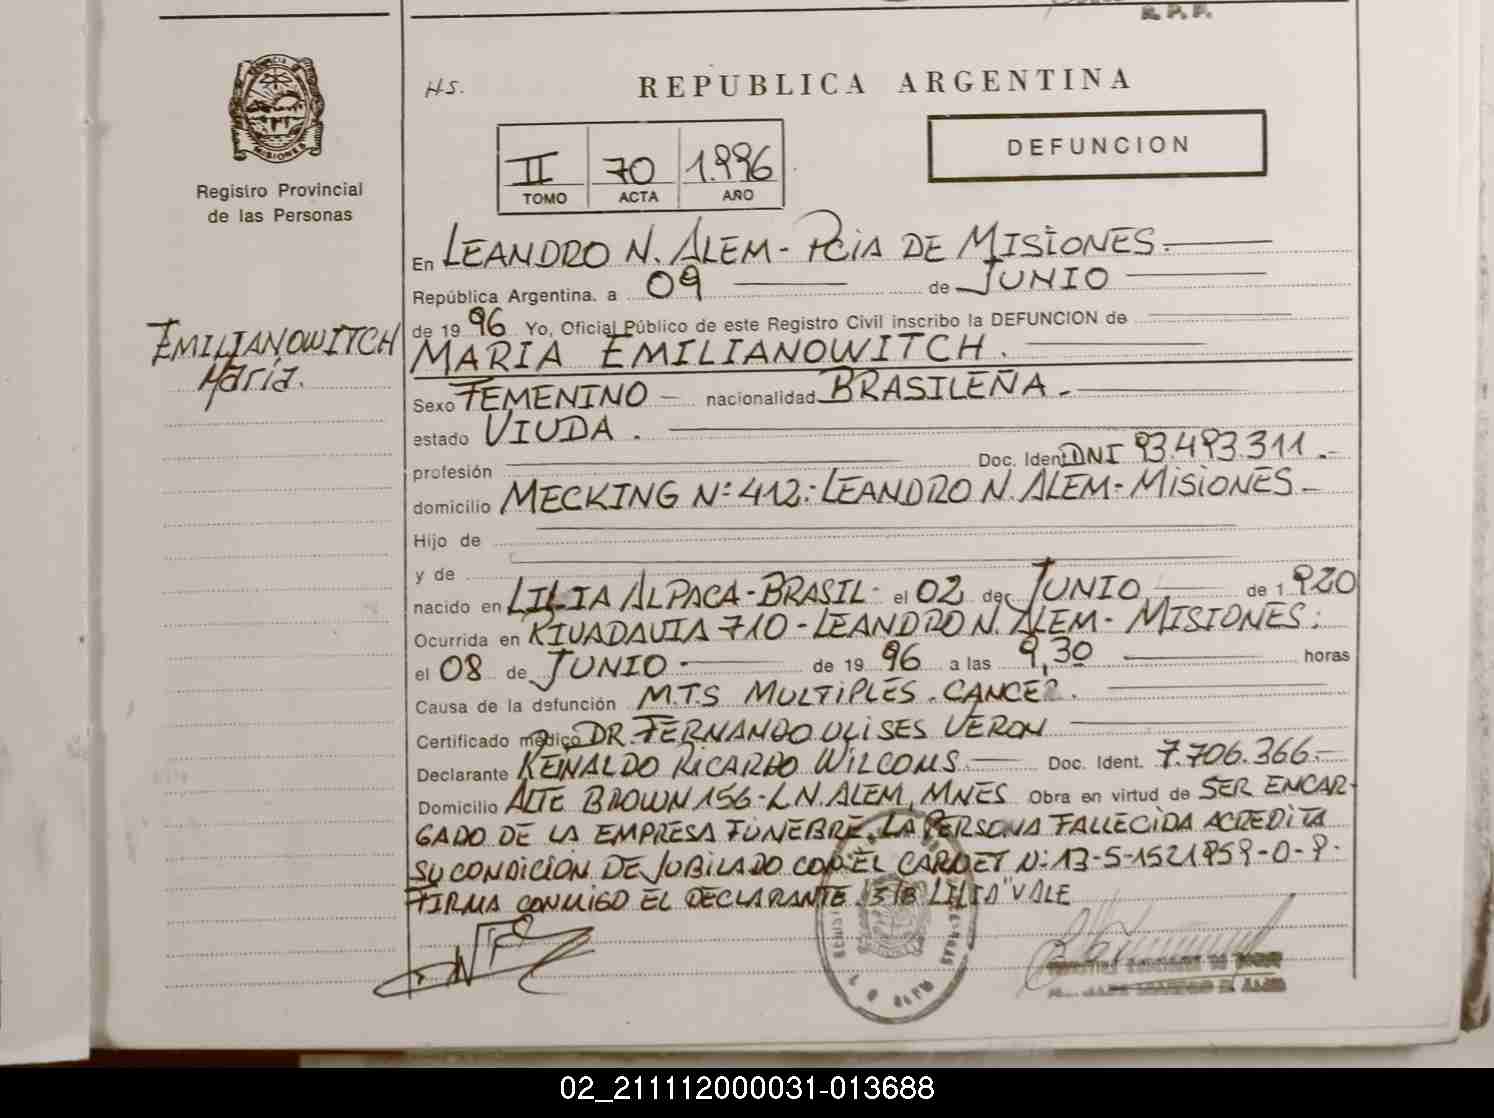 R. P. P.
Registro Provincial
de las Personas
HS.
REPUBLICA ARGENTINA
II 70 1.996
TOMO ACTA AÑO
DEFUNCION
En LEANDRO N. ALEM - PCIA DE MISIONES.
República Argentina. a 09 de JUNIO
de 1996 Yo, Oficial Público de este Registro Civil inscribo la DEFUNCION de
EMILIANOWITCH
María.
MARIA EMILIANOWITCH.
Sexo FEMENINO - nacionalidad BRASILEÑA.
estado VIUDA.
profesión Doc. Ident. DNI 93.493.311.-
domicilio MECKING Nº 412.- LEANDRO N. ALEM - MISIONES -
Hijo de
y de
nacido en LILIA ALPACA - BRASIL - el 02 de JUNIO de 1920
Ocurrida en RIVADAVIA 710 - LEANDRO N. ALEM - MISIONES.
el 08 de JUNIO.- de 1996 a las 9,30 horas
Causa de la defunción M.T.S MULTIPLES. CANCER.
Certificado médico DR. FERNANDO ULISES VERON
Declarante REINALDO RICARDO WILCOMS. Doc. Ident. 7.706.366.-
Domicilio ALTE BROWN 156 - L.N. ALEM, MNES Obra en virtud de SER ENCAR-
GADO DE LA EMPRESA FUNEBRE. LA PERSONA FALLECIDA ACREDITA
SU CONDICION DE JUBILADO CON EL CARNET Nº 13-5-1521959-0-9.
FIRMA CONMIGO EL DECLARANTE. S/B "LILIA" VALE
02_211112000031-013688